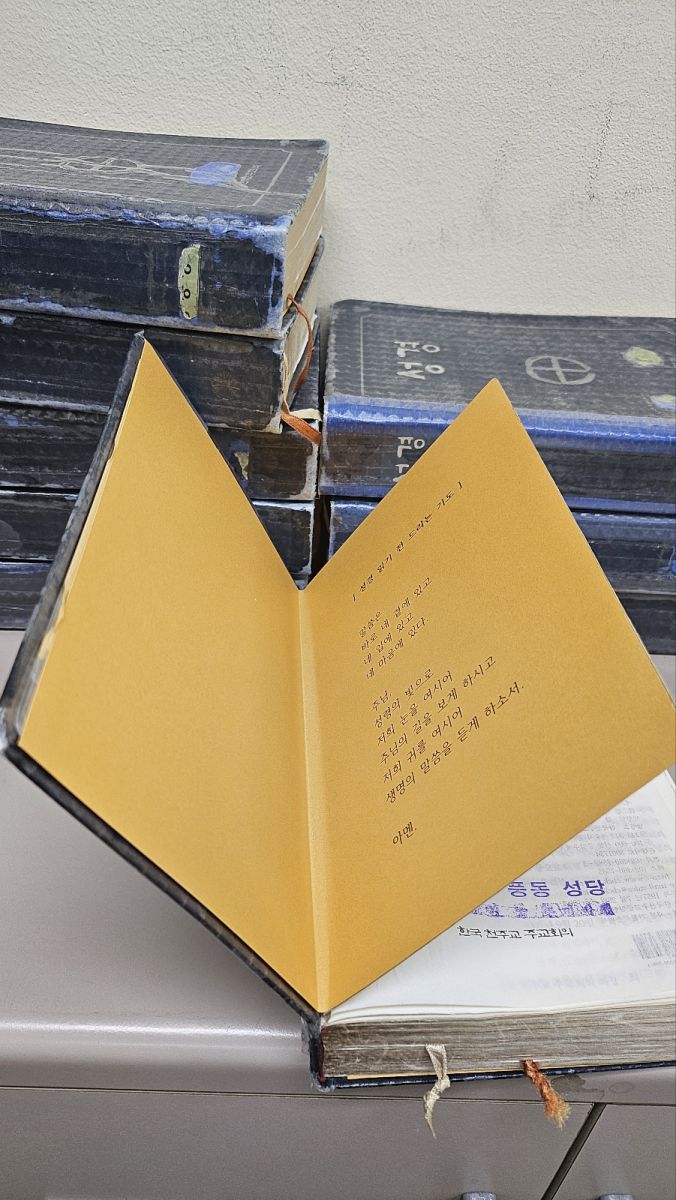 성경
성경
| 성경 읽기 전 드리는 기도 |
말씀은
바로 내 곁에 있고
내 입에 있고
내 마음에 있다.
주님,
성령의 빛으로
저희 눈을 여시어
주님의 길을 보게 하시고
저희 귀를 여시어
생명의 말씀을 듣게 하소서.
아멘.
풍동 성당
한국 천주교 주교회의